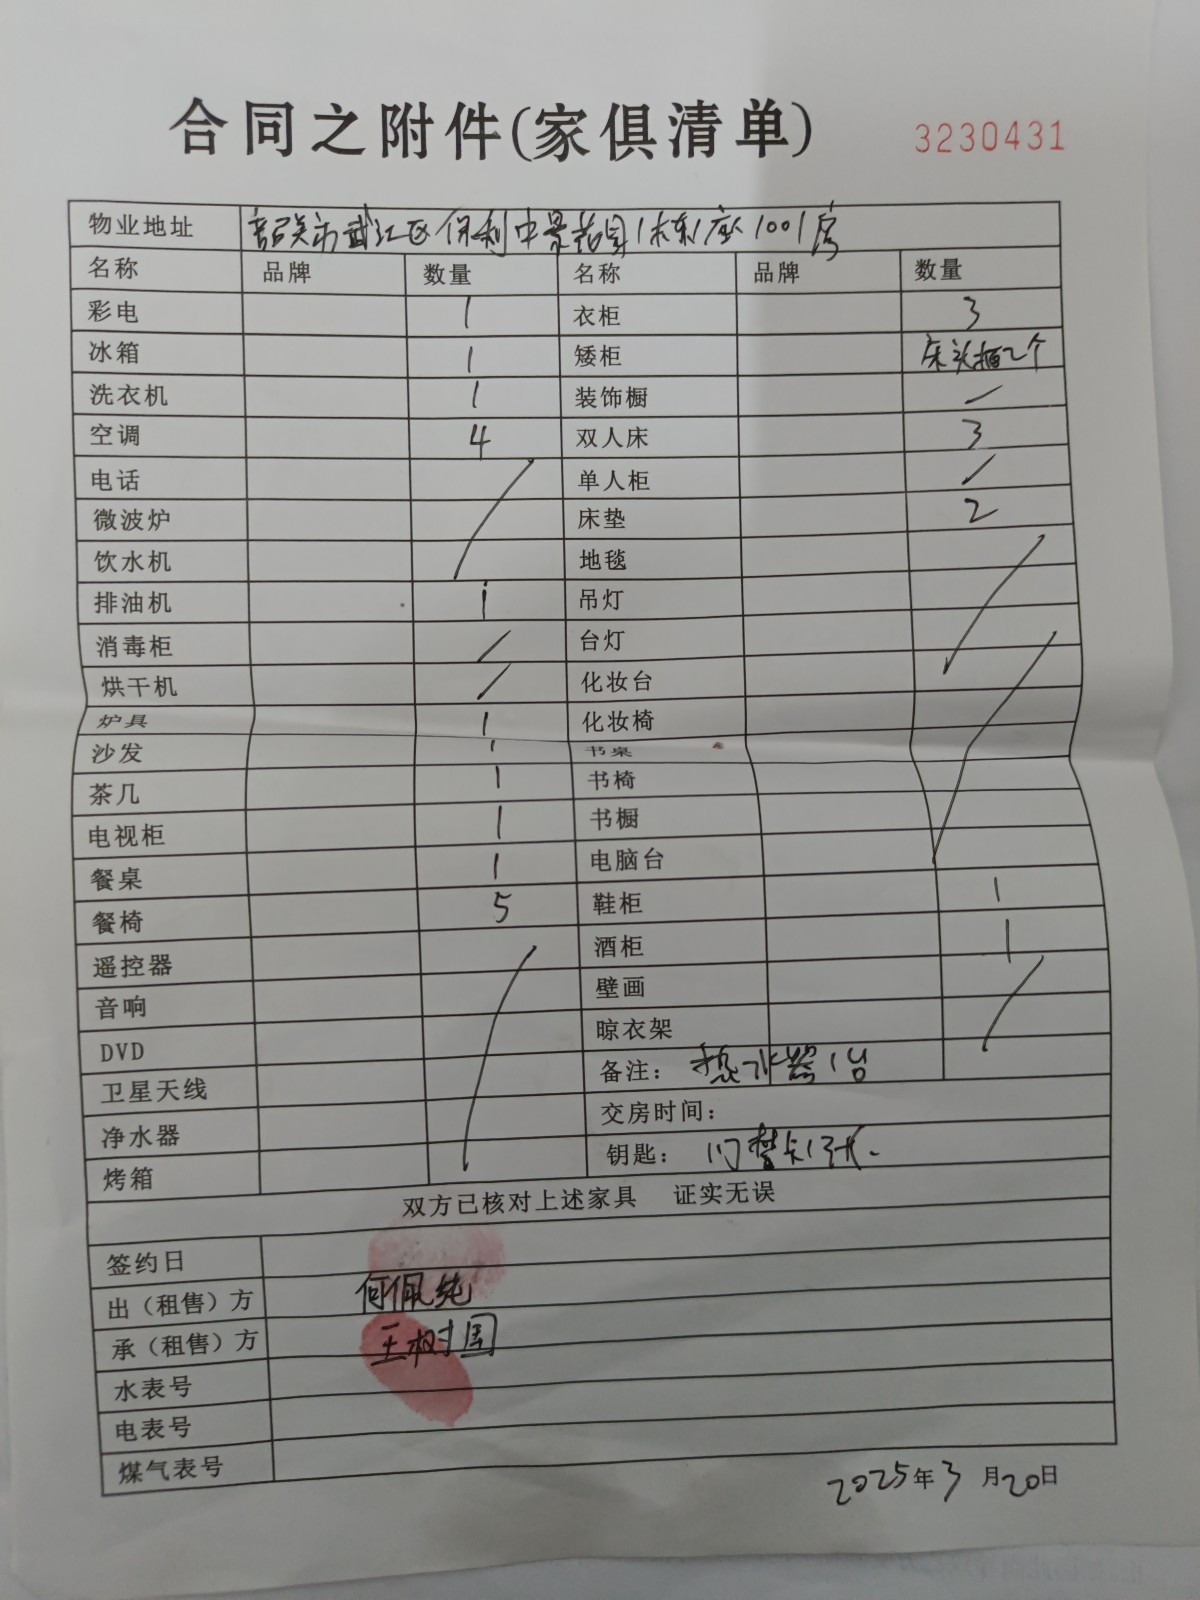 合同之附件(家俱清单)
3230431
物业地址 韶关市武江区保利中景花园1栋1座1001房
名称 品牌 数量 名称 品牌 数量
彩电 1 衣柜 3
冰箱 1 矮柜 床头柜2个
洗衣机 1 装饰橱 /
空调 4 双人床 3
电话 单人柜 /
微波炉 床垫 2
饮水机 地毯
排油机 1 吊灯
消毒柜 / 台灯
烘干机 / 化妆台
炉具 1 化妆椅
沙发 1 书桌
茶几 1 书椅
电视柜 1 书橱
餐桌 1 电脑台
餐椅 5 鞋柜 1
遥控器 酒柜 1
音响 壁画
DVD 晾衣架
卫星天线 备注: 热水器1台
净水器 交房时间:
烤箱 钥匙: 门禁卡1张.
双方已核对上述家具 证实无误
签约日
出(租售)方 何佩纯
承(租售)方 王树国
水表号
电表号
煤气表号
2025年3月20日